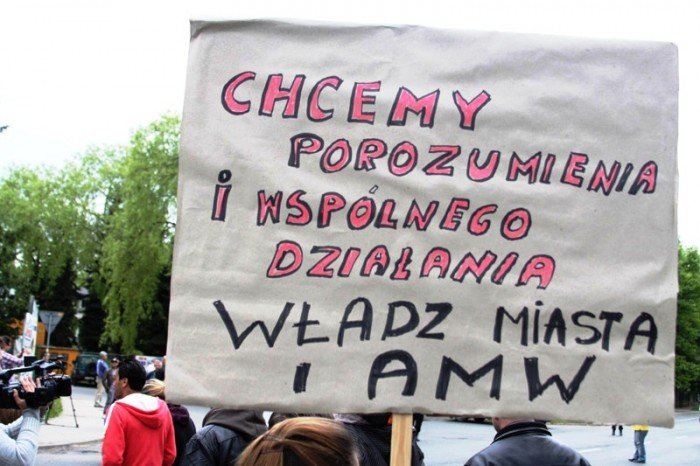 CHCEMY
POROZUMIENIA
i WSPÓLNEGO
DZIAŁANIA
WŁADZ MIASTA
I AMW